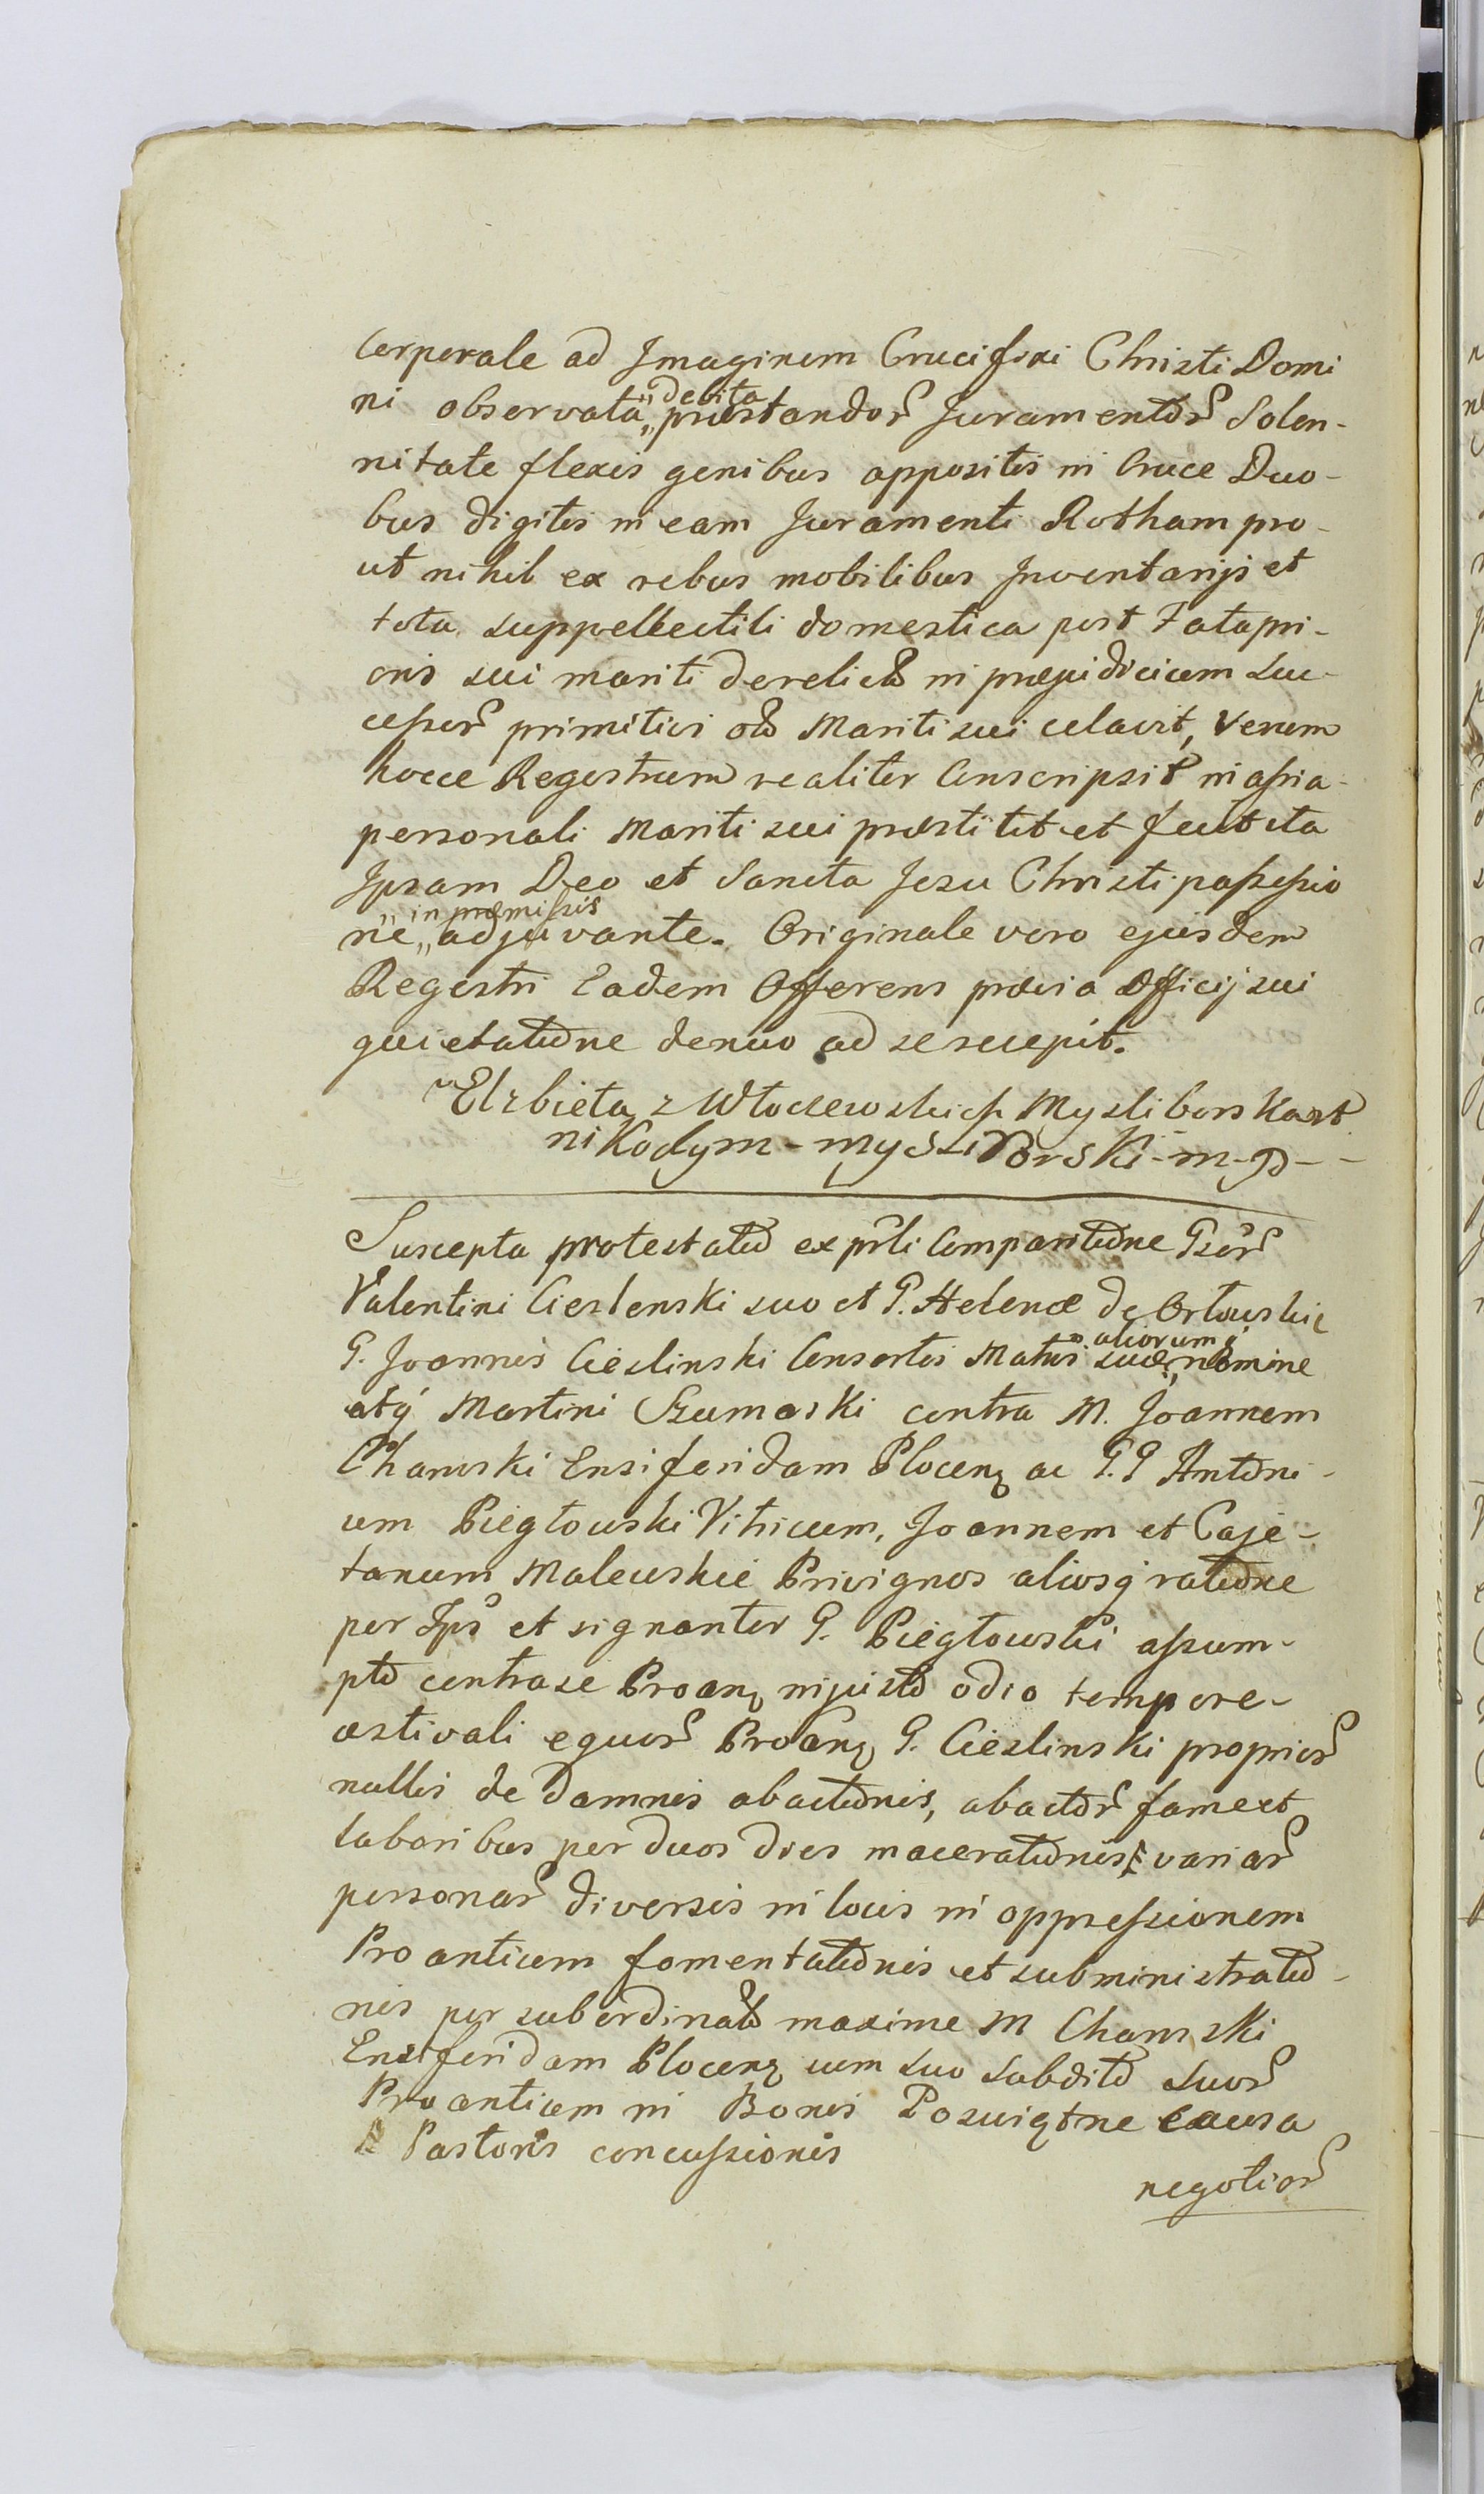 Corporale ad Imaginem Crucifixi Christi Domi
ni observata „debita„ præstandor Juramentor Solen-
nitate flexis genibus appositis in Cruce Duo-
bus digitis in eam Juramenti Rotham pro-
ut nihil ex rebus mobilibus Inventarijs et
tota suppellectili domestica post Fata pri-
oris sui mariti derelicto in præjudicium Suc-
cessor primitivi olo Mariti sui celavit, Verum
hocce Regestrum realiter Conscripsit in assia-
personali Mariti sui præstitit et fecit ita
Ipsam Deo et Sancta Jesu Christi passessio
ne „in præmissis„ adjuvante. Originale vero ejusdem
Regestri Eadem Offerens prævia Officij sui
quietatione denuo ad se recepit.
Elzbieta z Włociewskich Mysliborska
nikodym - mysliborski - m - p - -
Suscepta protestatio ex prli Comparitione Gsor
Valentini Cieslenski suo et G. Helenæ de Orłowskie
G. Joannis Cieslinski Consortis Matris suæ „aliorumq„ nomine
atq Martini Szumaski contra M. Joannem
Chamski Ensiferidam Plocenz ac G.G Antoni-
um Piegłowski Vitricum, Joannem et Caje-
tanum Malewskie Privignos aliosq ratione
per Ips et signanter G. Piegłowski assum-
pto contra se Proanz injusto odio tempore-
æstivali equor Proanz G. Cieslinski proprior
nullis de damnis abactionis, abactor fame et
laboribus per duos dies macerationis, variar
personar diversis in locis in oppressionem
Proanticem fomentationis et subministratio-
nis per subordinato maxime M Chamski
Ensiferidam Plocenz cum suo Subdito Suor
Proanticem in Bonis Posuigtne causa
Pastoris concussionis
negotior